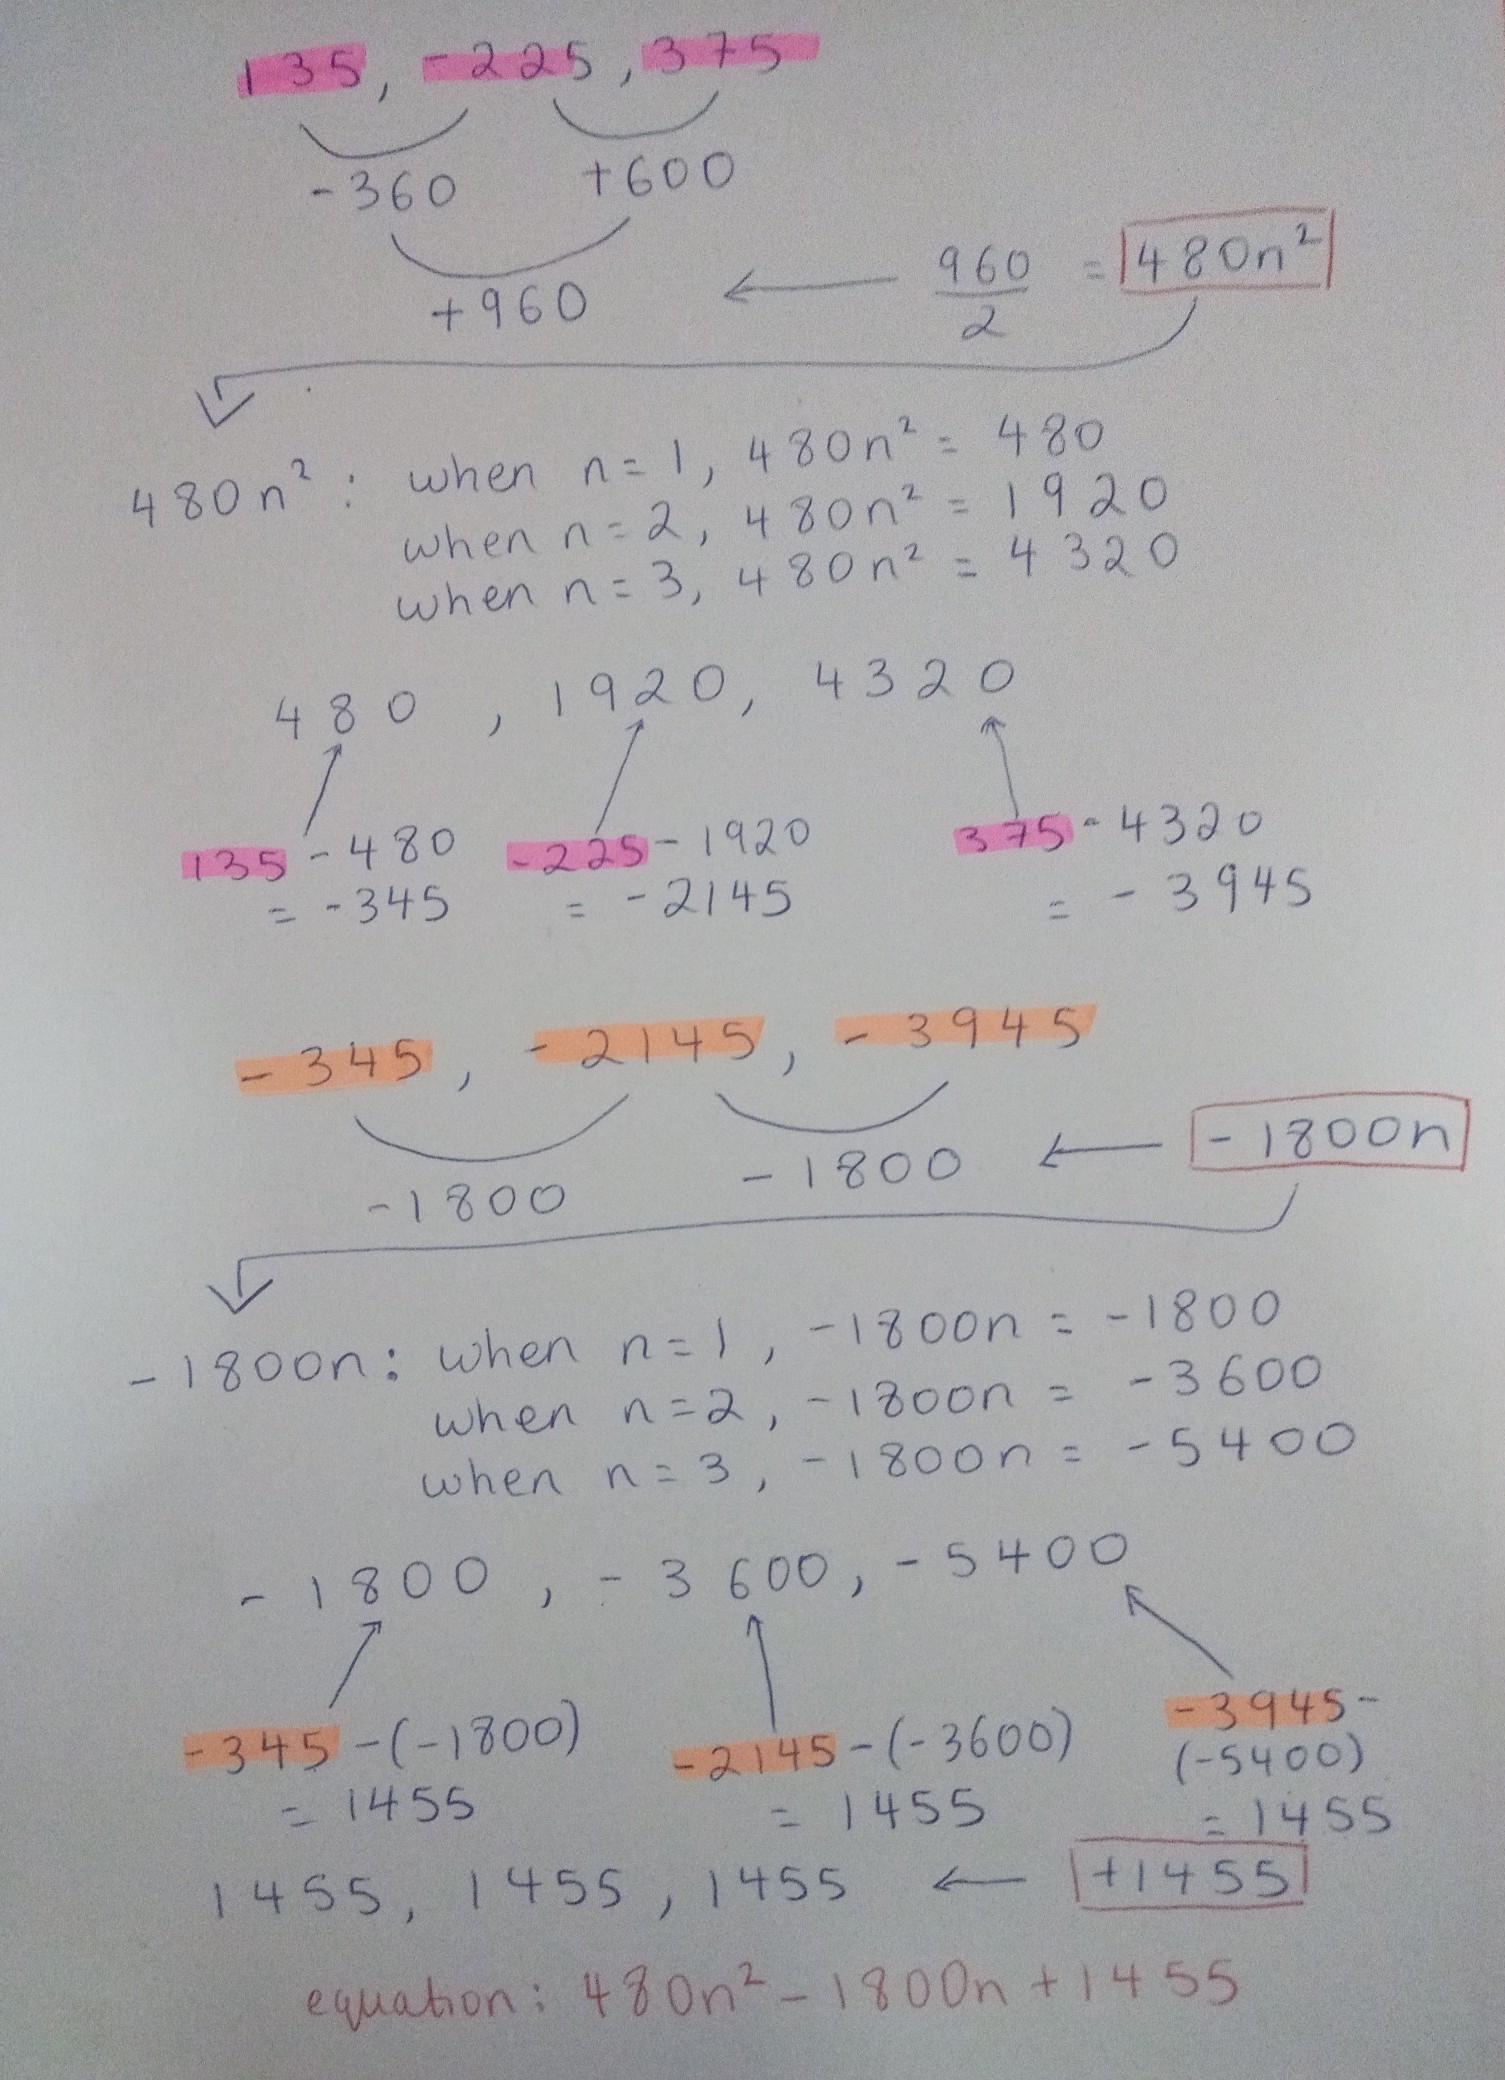 135, -225, 375
-360 +600
+960 ← 960/2 = 480n²
480n²: when n=1, 480n² = 480
when n=2, 480n² = 1920
when n=3, 480n² = 4320
480, 1920, 4320
135-480 -225-1920 375-4320
= -345 = -2145 = -3945
-345, -2145, -3945
-1800 -1800 ← -1800n
-1800n: when n=1, -1800n = -1800
when n=2, -1800n = -3600
when n=3, -1800n = -5400
-1800, -3600, -5400
-345-(-1800) -2145-(-3600) -3945-
(-5400)
= 1455 = 1455 = 1455
1455, 1455, 1455 ← +1455
equation: 480n²-1800n+1455